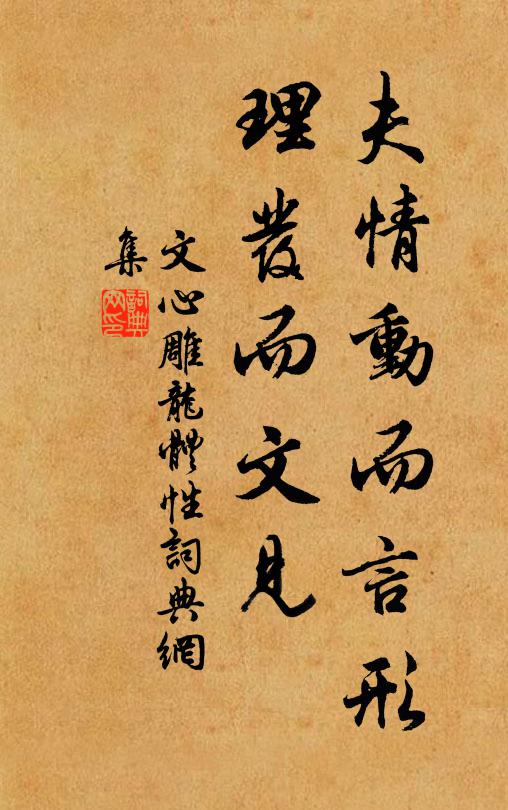 夫情動而言形
理發而文見
文心雕龍體性詞典網
集
詞典
网印